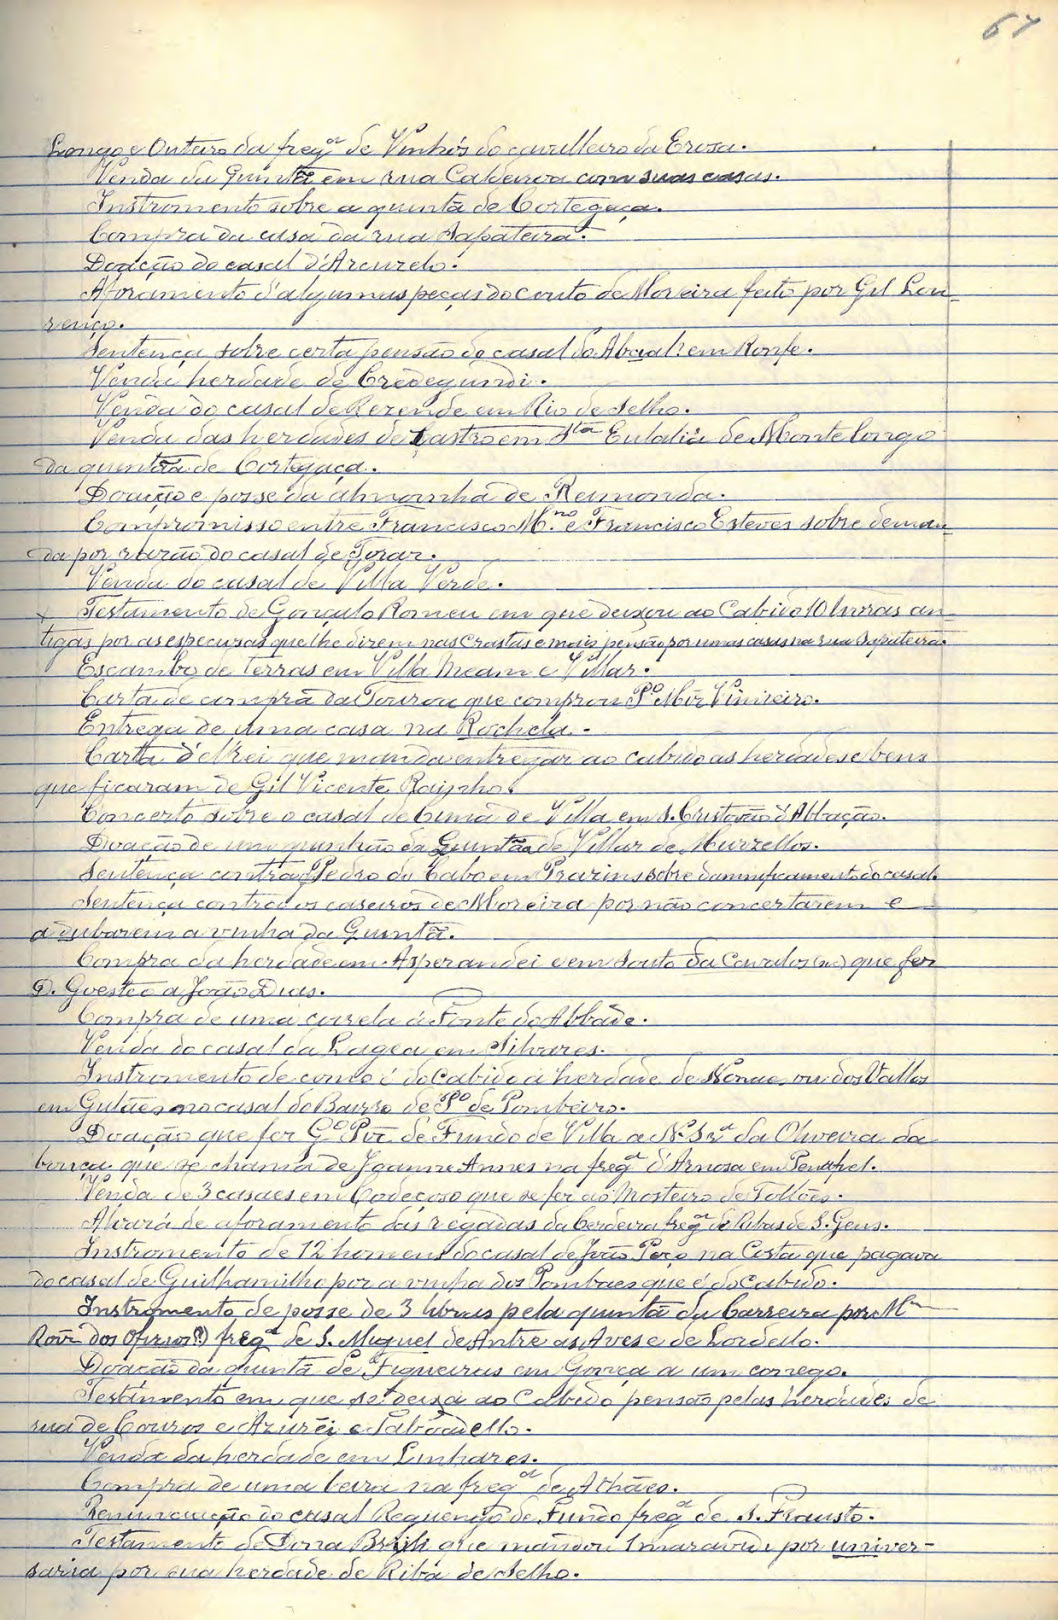 67
Longo e Outaro da freg.ª de Vinhós do cavalleiro da Erosa.
Venda da Quintã em rua Caldeiroa com suas casas.
Instromento sobre a quintã de Cortegaça.
Compra da casa da rua Sapateira.
Doacção do casal d'Arcuzelo.
Aforamento d'algumas peças do couto de Moreira feito por Gil Lou-
renço.
Sentença sobre certa pensão do casal do Abcial! em Ronfe.
Venda herdade de Credegundi.
Venda do casal de Rezende em Rio de Selho.
Venda das herdades de Castro em Sta Eulalia de Monte longo
da quintãa de Cortegaça.
Doacção e posse da almoinha de Reimonda.
Compromisso entre Francisco M.no e Francisco Esteves sobre deman-
da por razão do casal de Torar.
Venda do casal de Villa Verde.
x Testamento de Gonçalo Romeu em que deixou ao Cabido 10 livras an-
tigas por as especursas que lhe direm nas Crastas e mais pensão por umas casas na rua Sapateira.
Escambo de terras em Villa Meam e Villar.
Carta de compra da Tourou que comprou P.º Miz Vimieiro.
Entrega de uma casa na Rochela.
Carta d'Elrei que manda entregar ao cabido as herdades e bens
que ficaram de Gil Vicente Rajinho.
Concerto sobre o casal de Cima de Villa em S. Cristovão d'Abbação.
Doação de um quinhão da Quintãa de Villar de Murzellos.
Sentença contra Pedro do Cabo em Prazins sobre damnificamento do casal.
Sentença contra os caseiros de Moreira por não concertarem e
adubarem a vinha da Quintã.
Compra da herdade em Asperandei e em Souto da Cavalos (sic) que fez
D. Goestco a João Dias.
Compra de uma correla á Fonte do Abbade.
Venda do casal da Lagea em Silvares.
Instromento de como é do Cabido a herdade de Nonae, ou dos Vallos
em Gulães no casal do Bairro de P.º de Pombeiro.
Doação que fez G.º Piz de Fundo de Villa a N. Snr.ª da Oliveira da
bouça que se chama de Joanne Annes na freg.ª d'Arnosa em Penafiel.
Venda de 3 casaes em Codeçoso que se fez ao Mosteiro de Tollões.
Alvará de aforamento das regadas da Cerdeira freg.ª de Ribas de S. Gens.
Instromento de 12 homens do casal de João Poço na Costa que pagava
do casal de Guilhamilho por a vinha dos Pombaes que é do Cabido.
Instromento de posse de 3 libras pela quintã da Carreira por Mn
Roiz dos Ofirsos(?) freg.ª de S. Miguel de Antre as Aves e de Lordello.
Doacção da quintã de Figueiras em Gonça a um conego.
Testamento em que se deixa ao Cabido pensão pelas herdades de
rua de Couros e Azurēi e Taboadello.
Venda da herdade em Linhares.
Compra de uma leira na freg.ª de Athães.
Renunciação do casal Reguengo de Fundo freg.ª de S. Frausto.
Testamento de Dona que mandou 1 maravidi por univer-
saria por sua herdade de Riba de Selho.